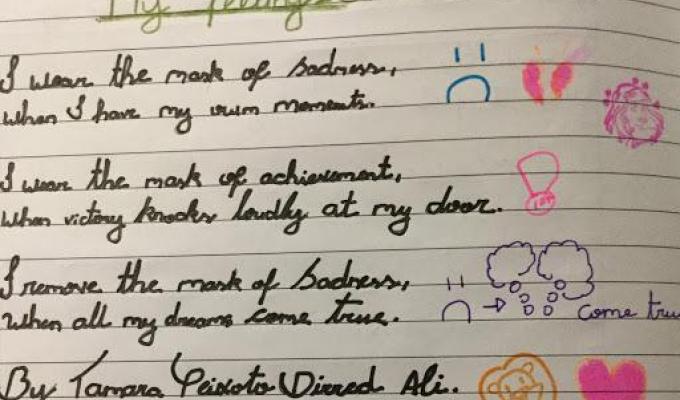 My feelings
I wear the mask of sadness,
when I have my worm moments.
I wear the mask of achievement,
When victory knocks loudly at my door.
I remove the mask of sadness,
When all my dreams come true.
come tru
By Tamara Peixoto Dirred Ali..